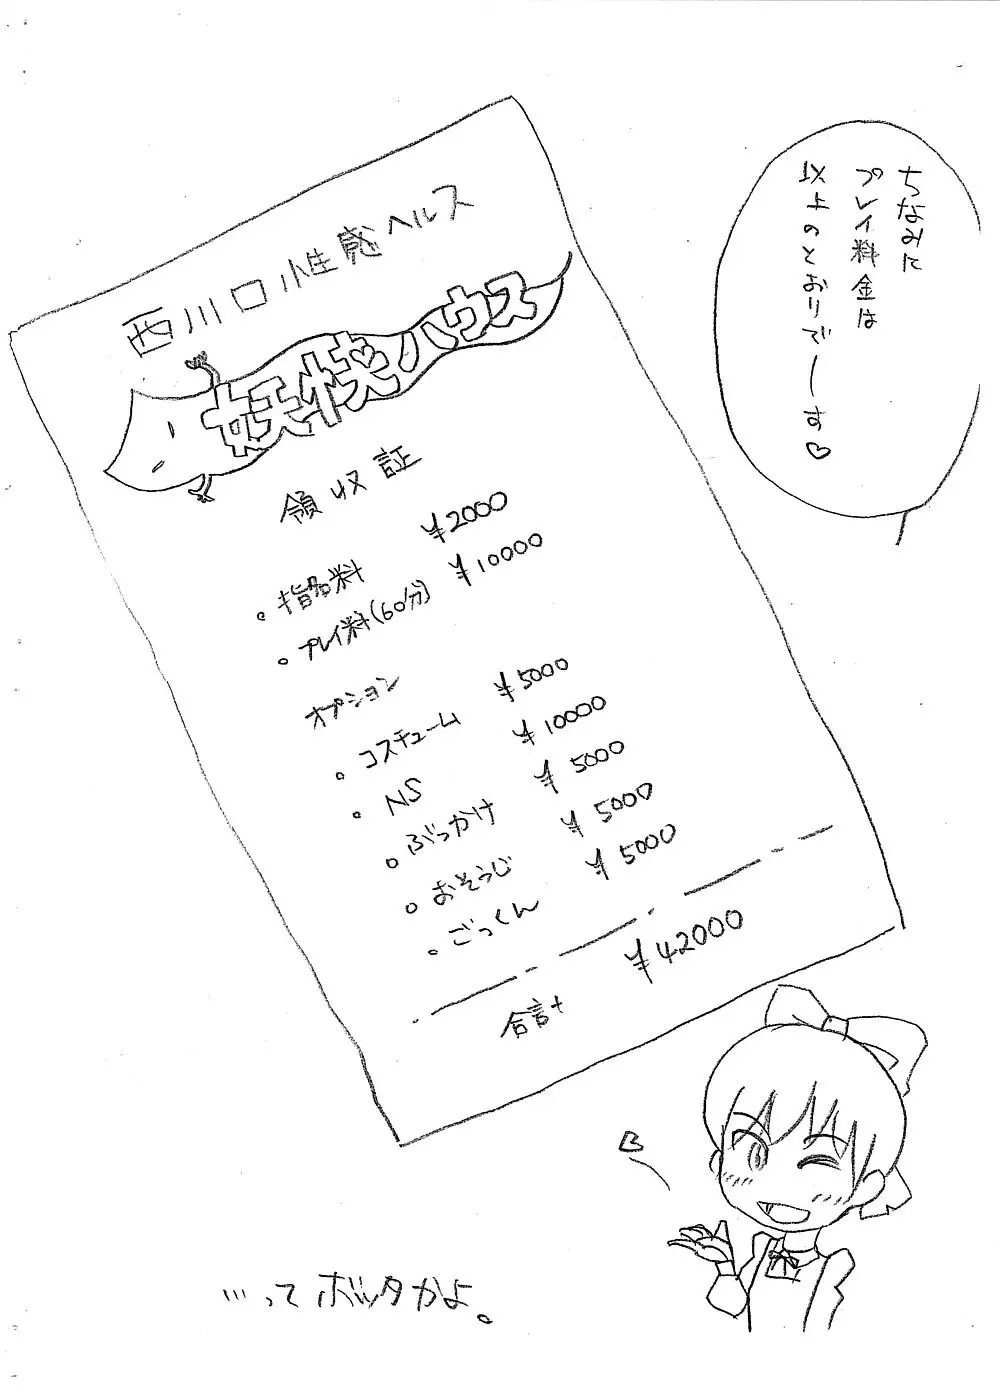 ちなみに
プレイ料金は
以上のとおりでーす♡
西川口性感ヘルス
妖快ハウス
領収証
・指名料 ¥2000
・プレイ料(60分) ¥10000
オプション
・コスチューム ¥5000
・NS ¥10000
・ぶっかけ ¥5000
・おそうじ ¥5000
・ごっくん ¥5000
合計 ¥42000
…ってボッタかよ。